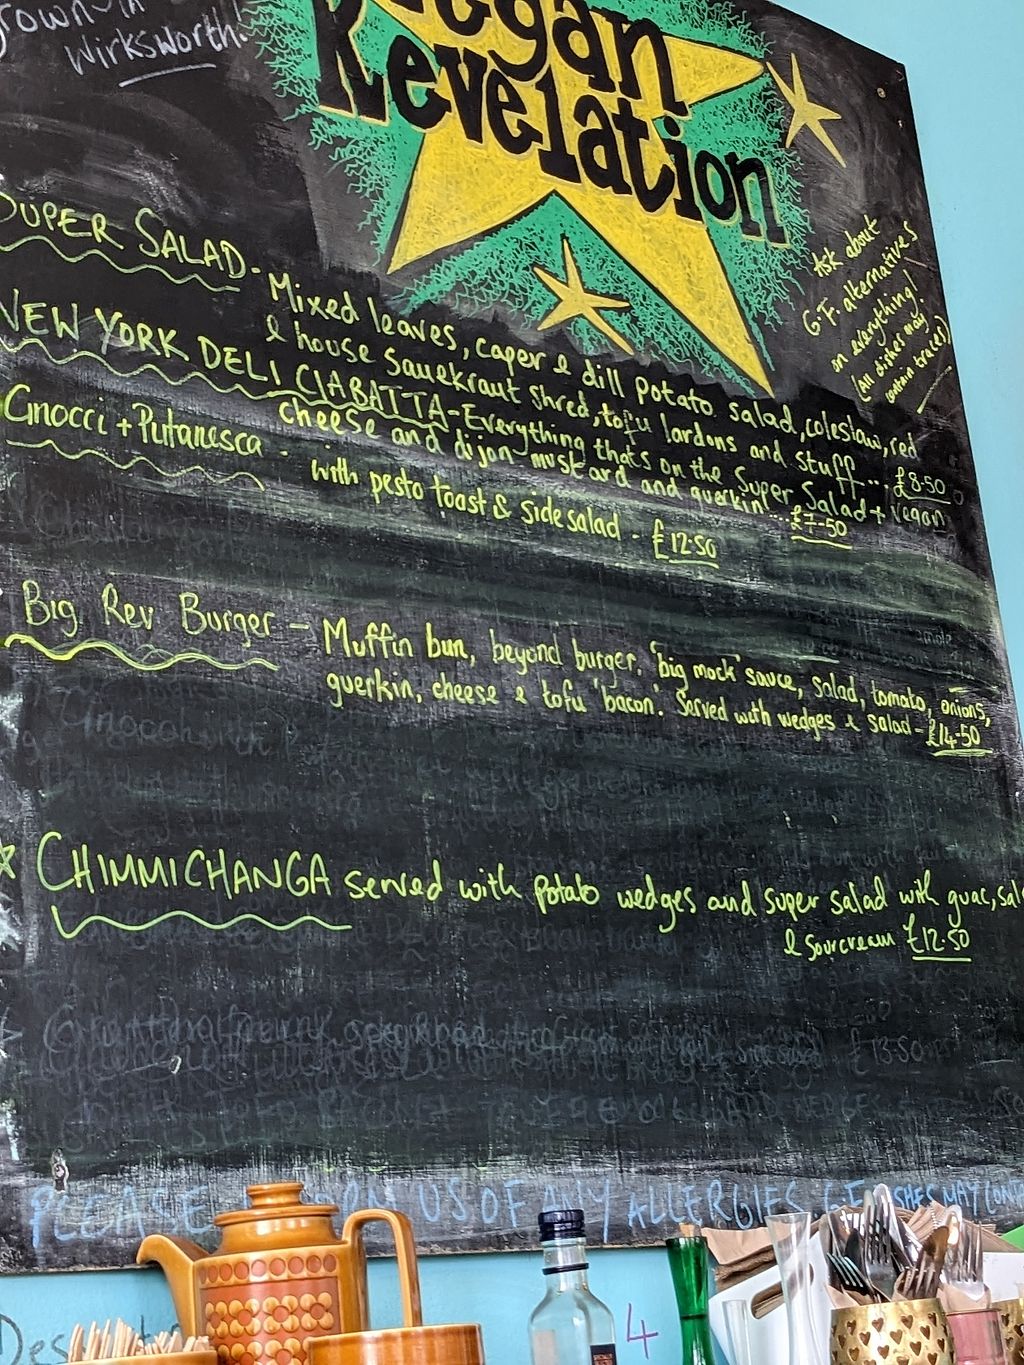 Wirksworth!
Revelation
Ask about
G.F. alternatives
on everything!
(All dishes may
contain traces)
SUPER SALAD - Mixed leaves, caper & dill potato salad, coleslaw, red
& house sauekraut shred, tofu lardons and stuff... £8.50
NEW YORK DELI CIABATTA - Everything thats on the Super Salad + vegan
cheese and dijon mustard and guerkin!... £7.50
Gnocci + Putanesca - with pesto toast & side salad - £12.50
Big Rev Burger - Muffin bun, beyond burger, 'big mock' sauce, salad, tomato, onions,
guerkin, cheese & tofu 'bacon'. Served with wedges & salad - £14.50
CHIMMICHANGA served with potato wedges and super salad with guac, sal
& sourcream £12.50
£13.50
PLEASE US OF ANY ALLERGIES. MAY
4